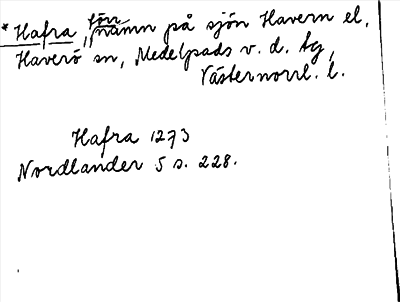 * Hafra, förr namn på sjön Havern el.
Haverö sn, Medelpads v. d. tg,
Västernorrl. l.
Hafra 1273
Nordlander 5 s. 228.